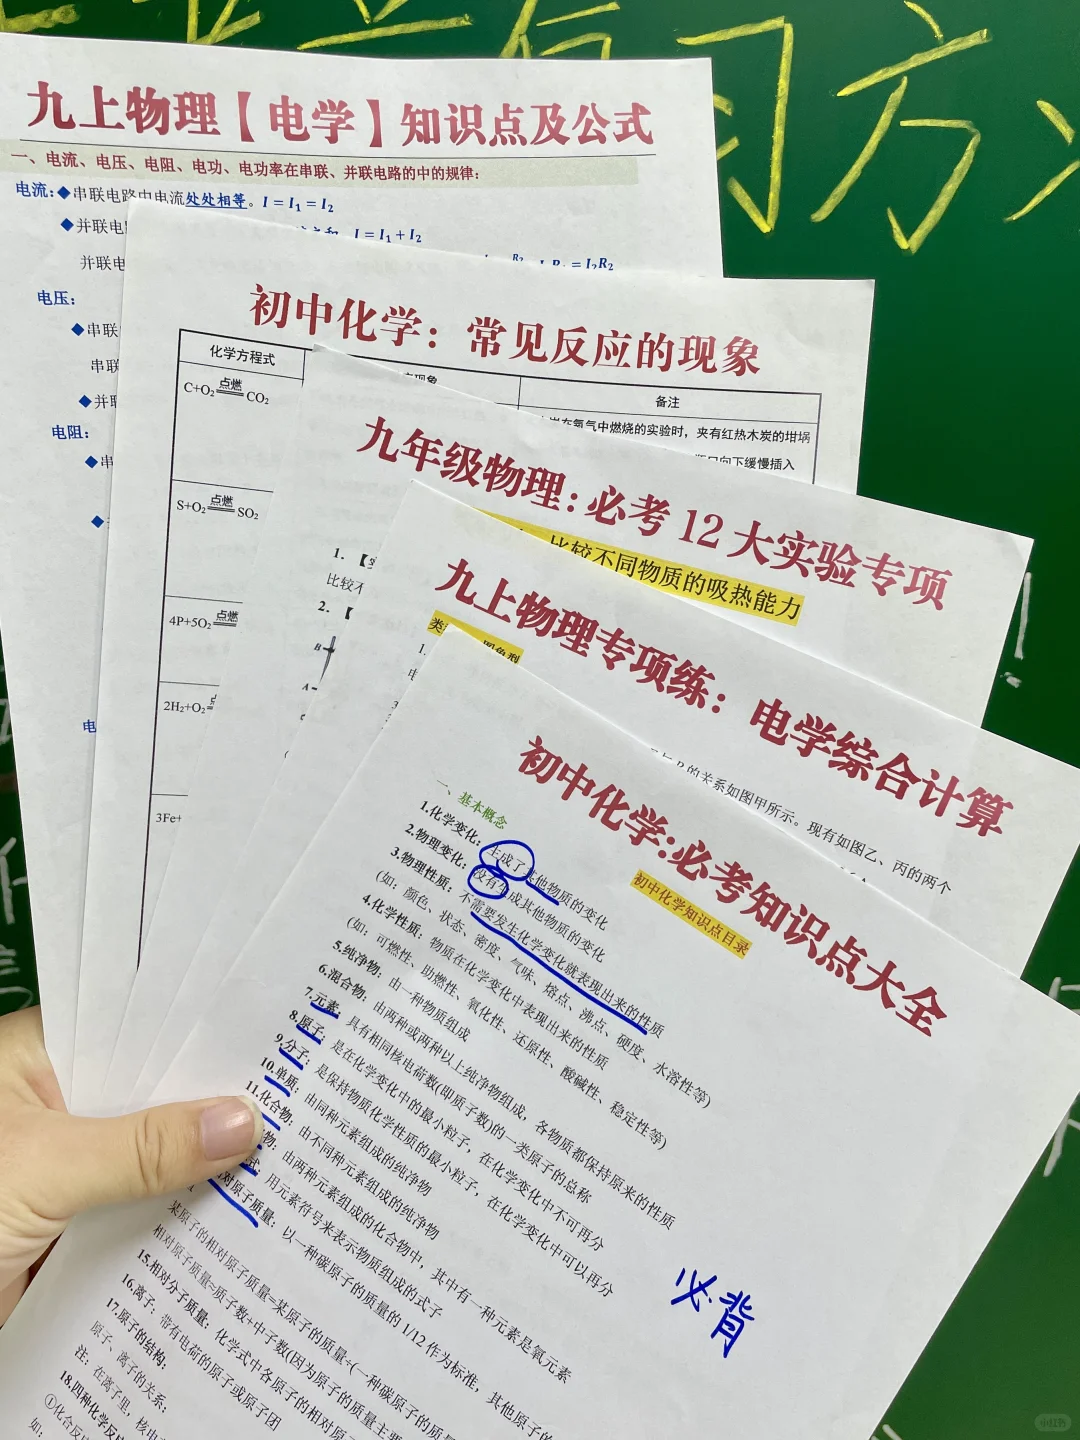 复习方法
九上物理【电学】知识点及公式
一、电流、电压、电阻、电功、电功率在串联、并联电路的中的规律：
电流：◆串联电路中电流处处相等。I = I₁ = I₂
◆并联电 I = I₁ + I₂
并联电 = I₂R₂
电压：
◆串联
串联
◆并联
电阻：
◆串
电
初中化学：常见反应的现象
化学方程式 现象 备注
C+O₂ 点燃 CO₂
在氧气中燃烧的实验时，夹有红热木炭的坩埚
瓶口向下缓慢插入
S+O₂ 点燃 SO₂
4P+5O₂ 点燃
2H₂+O₂
3Fe+
九年级物理：必考 12 大实验专项
比较不同物质的吸热能力
1.【
比较不
2.【
B
A
九上物理专项练：电学综合计算
类
1.
电
的关系如图甲所示。现有如图乙、丙的两个
初中化学:必考知识点大全
初中化学知识点目录
一、基本概念
1.化学变化：生成了其他物质的变化
2.物理变化：没有生成其他物质的变化
3.物理性质：不需要发生化学变化就表现出来的性质
(如：颜色、状态、密度、气味、熔点、沸点、硬度、水溶性等)
4.化学性质：物质在化学变化中表现出来的性质
(如：可燃性、助燃性、氧化性、还原性、酸碱性、稳定性等)
5.纯净物：由一种物质组成
6.混合物：由两种或两种以上纯净物组成，各物质都保持原来的性质
7.元素：具有相同核电荷数(即质子数)的一类原子的总称
8.原子：是在化学变化中的最小粒子，在化学变化中不可再分
9.分子：是保持物质化学性质的最小粒子，在化学变化中可以再分
10.单质：由同种元素组成的纯净物
11.化合物：由不同种元素组成的纯净物
物：由两种元素组成的化合物中，其中有一种元素是氧元素
式：用元素符号来表示物质组成的式子
相对原子质量：以一种碳原子的质量的 1/12 作为标准，其他原子的
某原子的相对原子质量=某原子的质量÷(一种碳原子的质
相对原子质量≈质子数+中子数(因为原子的质量主要
15.相对分子质量：化学式中各原子的相对原
16.离子：带有电荷的原子或原子团
17.原子的结构：
原子、离子的关系：
注：在离子里，核电
18.四种化学反应
①化合反应
如：
必背
小红书